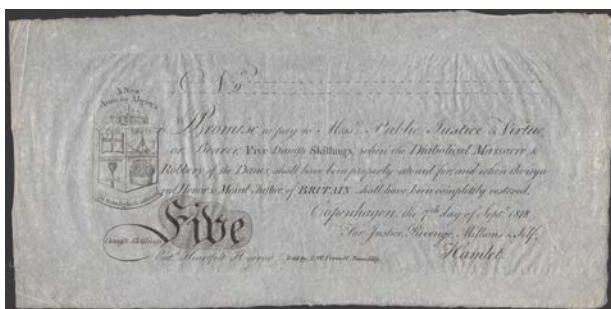 A New
Nº
I Promise to pay to Messrs. Public Justice & Virtue
or Bearer Five Danish Skillings when the Diabolical Massacre &
Robbery of the Danes, shall have been properly atoned for, and when the
Honor & Moral Justice of BRITAIN shall have been completely restored.
Copenhagen, the 7th day of Septr. 1818.
For Justice, Revenge, Millions & Self,
Five
Danish Skillings
Entd. Heartfelt Horror
Hamlet.